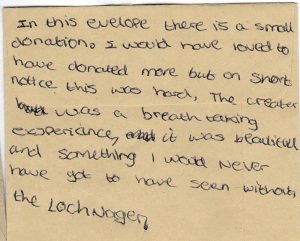 In this evelope there is a small
donation. I would have loved to
have donated more but on short
notice this was hard, The creater
was a breath taking
experiance, it was beautiful
and something I would NEVER
have got to have seen without
the LOCHNAGER,